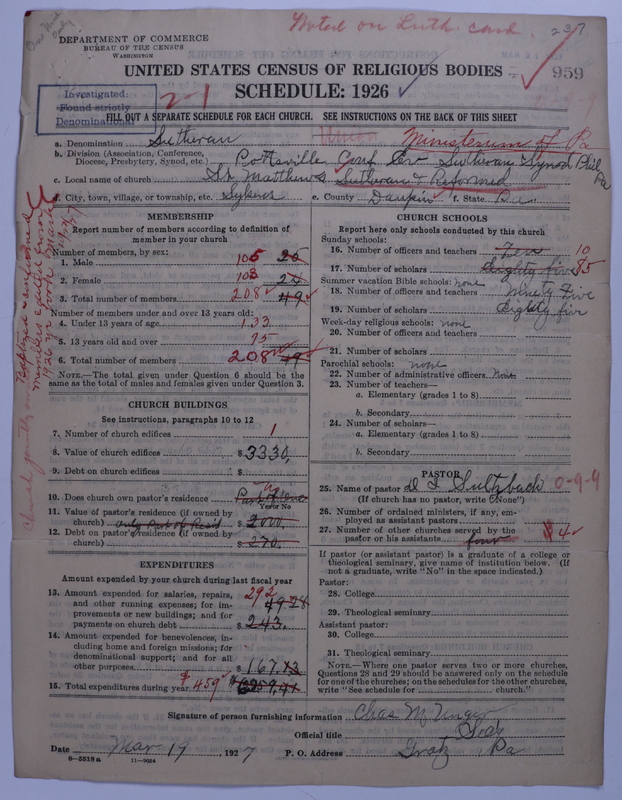 Noted on Luth. card
237
One Much only
DEPARTMENT OF COMMERCE
BUREAU OF THE CENSUS
WASHINGTON
UNITED STATES CENSUS OF RELIGIOUS BODIES
959
SCHEDULE: 1926
Investigated:
Found strictly
Denominational
2-1
FILL OUT A SEPARATE SCHEDULE FOR EACH CHURCH. SEE INSTRUCTIONS ON THE BACK OF THIS SHEET
a. Denomination Lutheran Ministerium of Pa
b. Division (Association, Conference, Diocese, Presbytery, Synod, etc.) Pottsville Conf Lutheran Synod Phil Pa
c. Local name of church St Matthews Lutheran & Reformed
d. City, town, village, or township, etc. Lykens e. County Dauphin f. State Pa.
MEMBERSHIP
Report number of members according to definition of
member in your church
Number of members, by sex:
1. Male 105 25
2. Female 103 24
3. Total number of members 208 49
Number of members under and over 13 years old:
4. Under 13 years of age 133
5. 13 years old and over 75
6. Total number of members 208 49
NOTE.—The total given under Question 6 should be
same as the total of males and females given under Question 3.
CHURCH BUILDINGS
See instructions, paragraphs 10 to 12
7. Number of church edifices 1
8. Value of church edifices $3330.
9. Debt on church edifices $
10. Does church own pastor's residence Part of One
Yes or No
11. Value of pastor's residence (if owned by
church) only Part of Resid $2000.
12. Debt on pastor's residence (if owned by
church) $270.
EXPENDITURES
Amount expended by your church during last fiscal year
13. Amount expended for salaries, repairs,
and other running expenses; for im-
provements or new buildings; and for
payments on church debt 292 49.28
$243.
14. Amount expended for benevolences, in-
cluding home and foreign missions; for
denominational support; and for all
other purposes $167.13
15. Total expenditures during year $459
CHURCH SCHOOLS
Report here only schools conducted by this church
Sunday schools:
16. Number of officers and teachers 10
17. Number of scholars Eighty five 85
Summer vacation Bible schools: none
18. Number of officers and teachers Ninety Five
19. Number of scholars Eighty five
Week-day religious schools: none
20. Number of officers and teachers
21. Number of scholars
Parochial schools: none
22. Number of administrative officers None
23. Number of teachers—
a. Elementary (grades 1 to 8)
b. Secondary
24. Number of scholars—
a. Elementary (grades 1 to 8)
b. Secondary
PASTOR
25. Name of pastor D I Sultzbach 0-9-9
(If church has no pastor, write "None")
26. Number of ordained ministers, if any, em-
ployed as assistant pastors
27. Number of other churches served by the
pastor or his assistants four 4
If pastor (or assistant pastor) is a graduate of a college or
theological seminary, give name of institution below. (If
not a graduate, write "No" in the space indicated.)
Pastor:
28. College
29. Theological seminary
Assistant pastor:
30. College
31. Theological seminary
NOTE.—Where one pastor serves two or more churches,
Questions 28 and 29 should be answered only on the schedule
for one of the churches; on the schedules for the other churches,
write "See schedule for church."
Signature of person furnishing information Chas M Unger
Official title Secy
Date Mar 19 1927 P. O. Address Gratz Pa
8-5518 a 11-9084